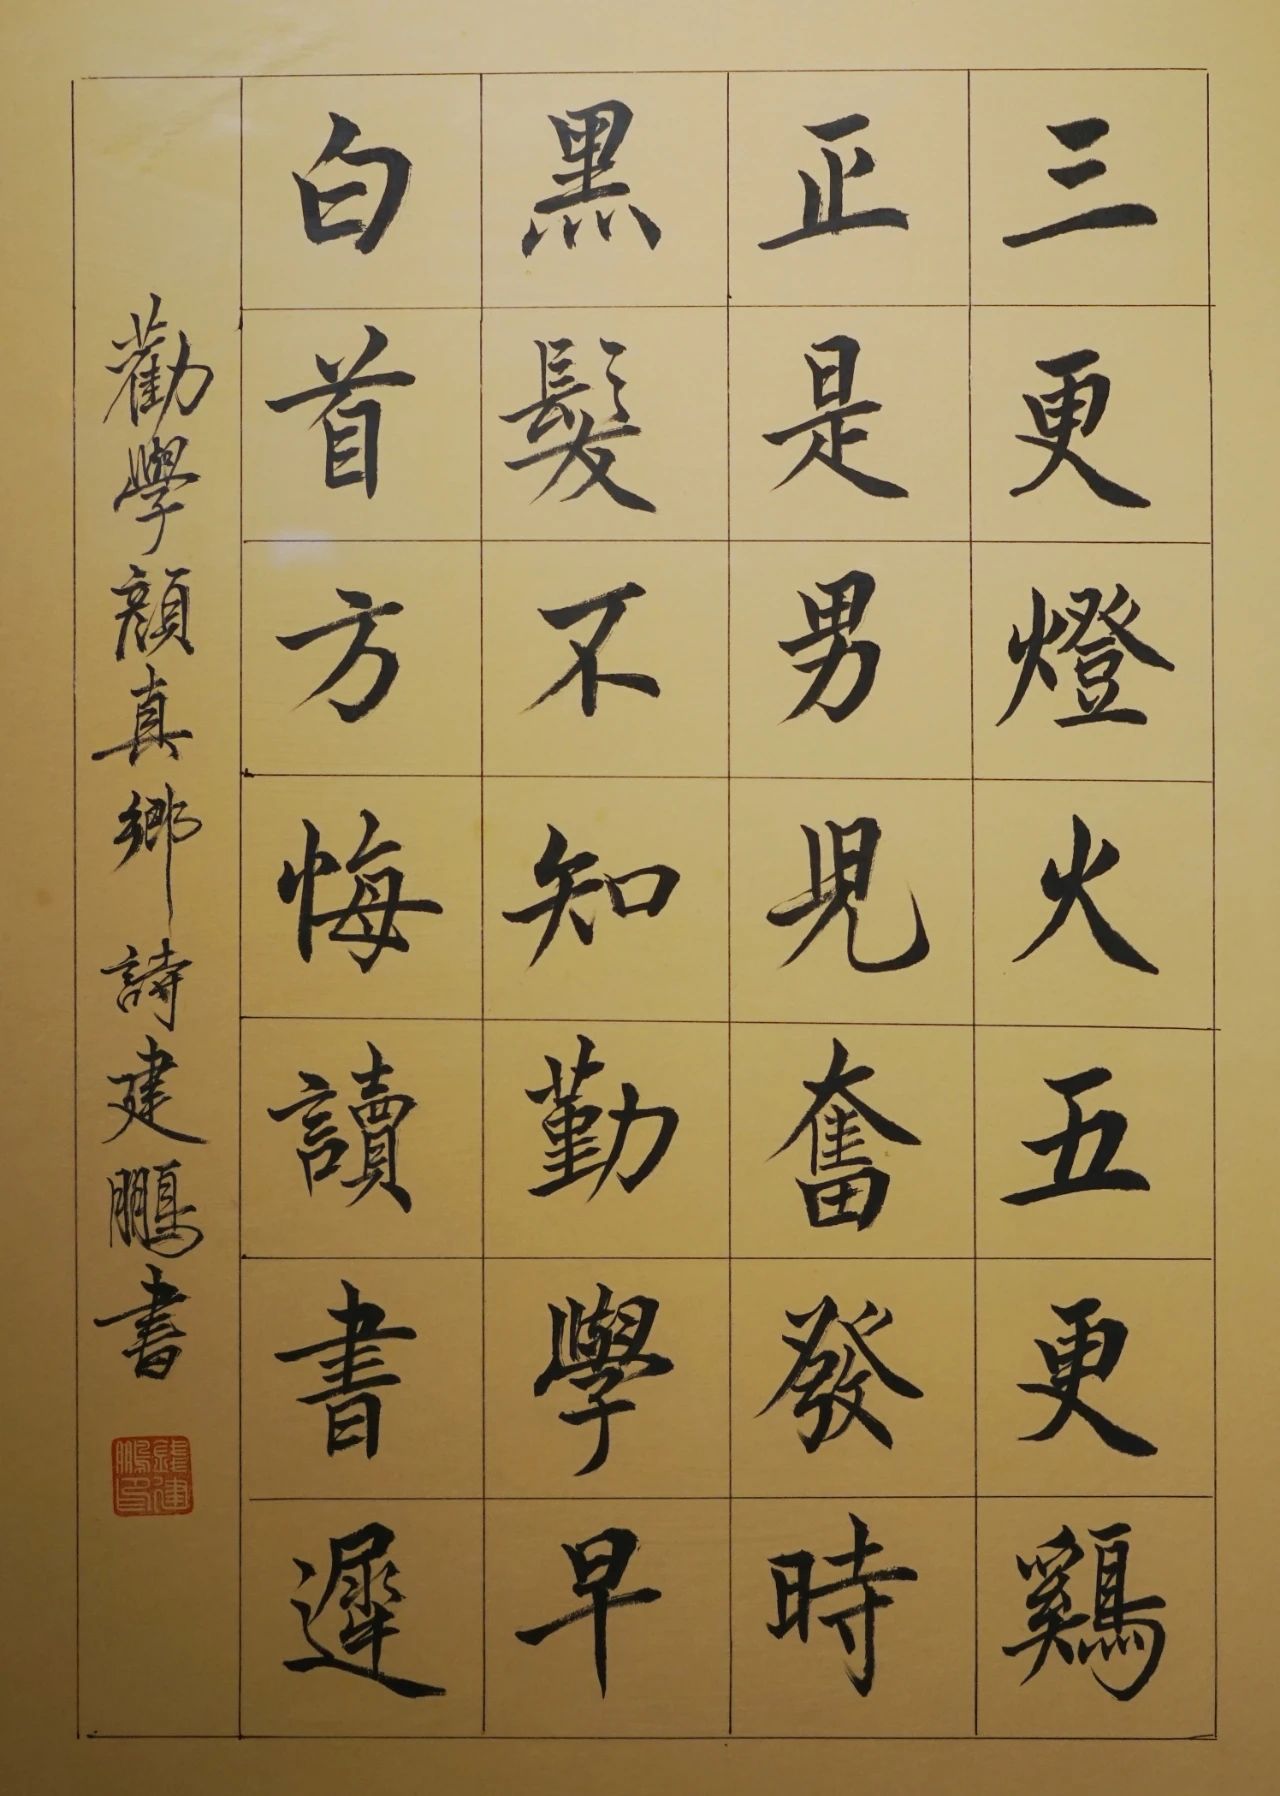 三更燈火五更鷄
正是男児奮發時
黑髮不知勤學早
白首方悔讀書遲
勸學顏真卿詩建鵬書
錢建鵬印